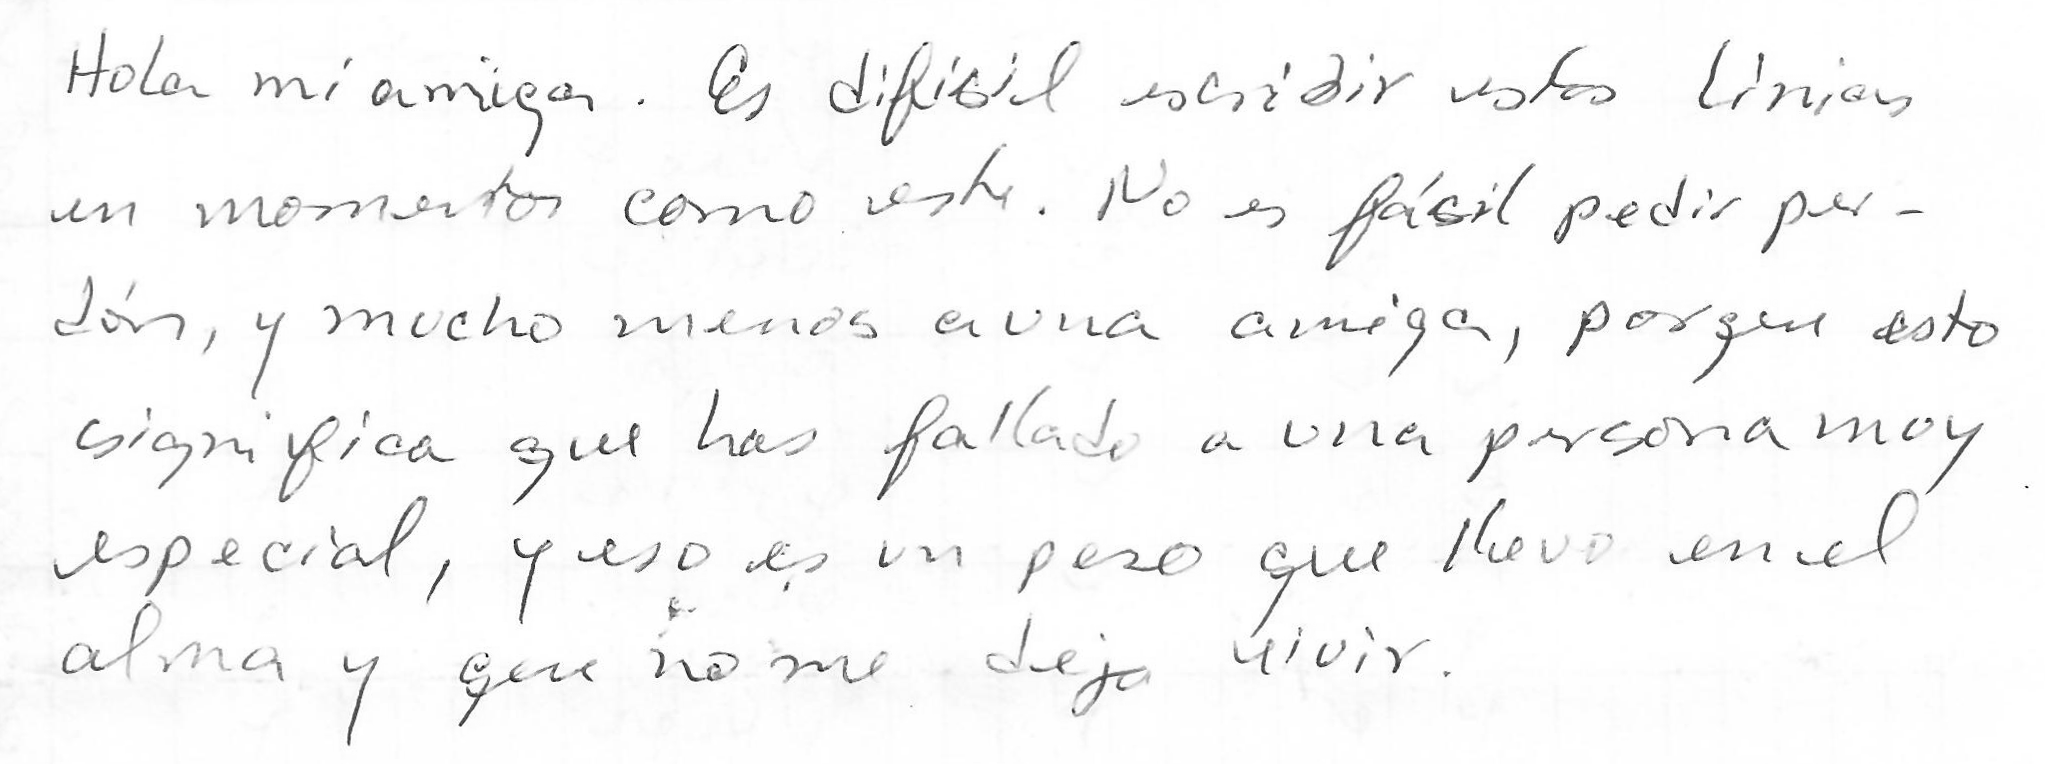 Hola mi amiga. Es difícil escribir estas línias
en momentos como este. No es fácil pedir per-
dón, y mucho menos a una amiga, porque esto
significa que has fallado a una persona muy
especial, y eso es un peso que llevo en el
alma y que no me deja vivir.